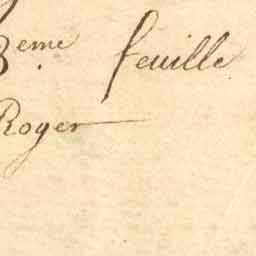 3eme feuille
Roger